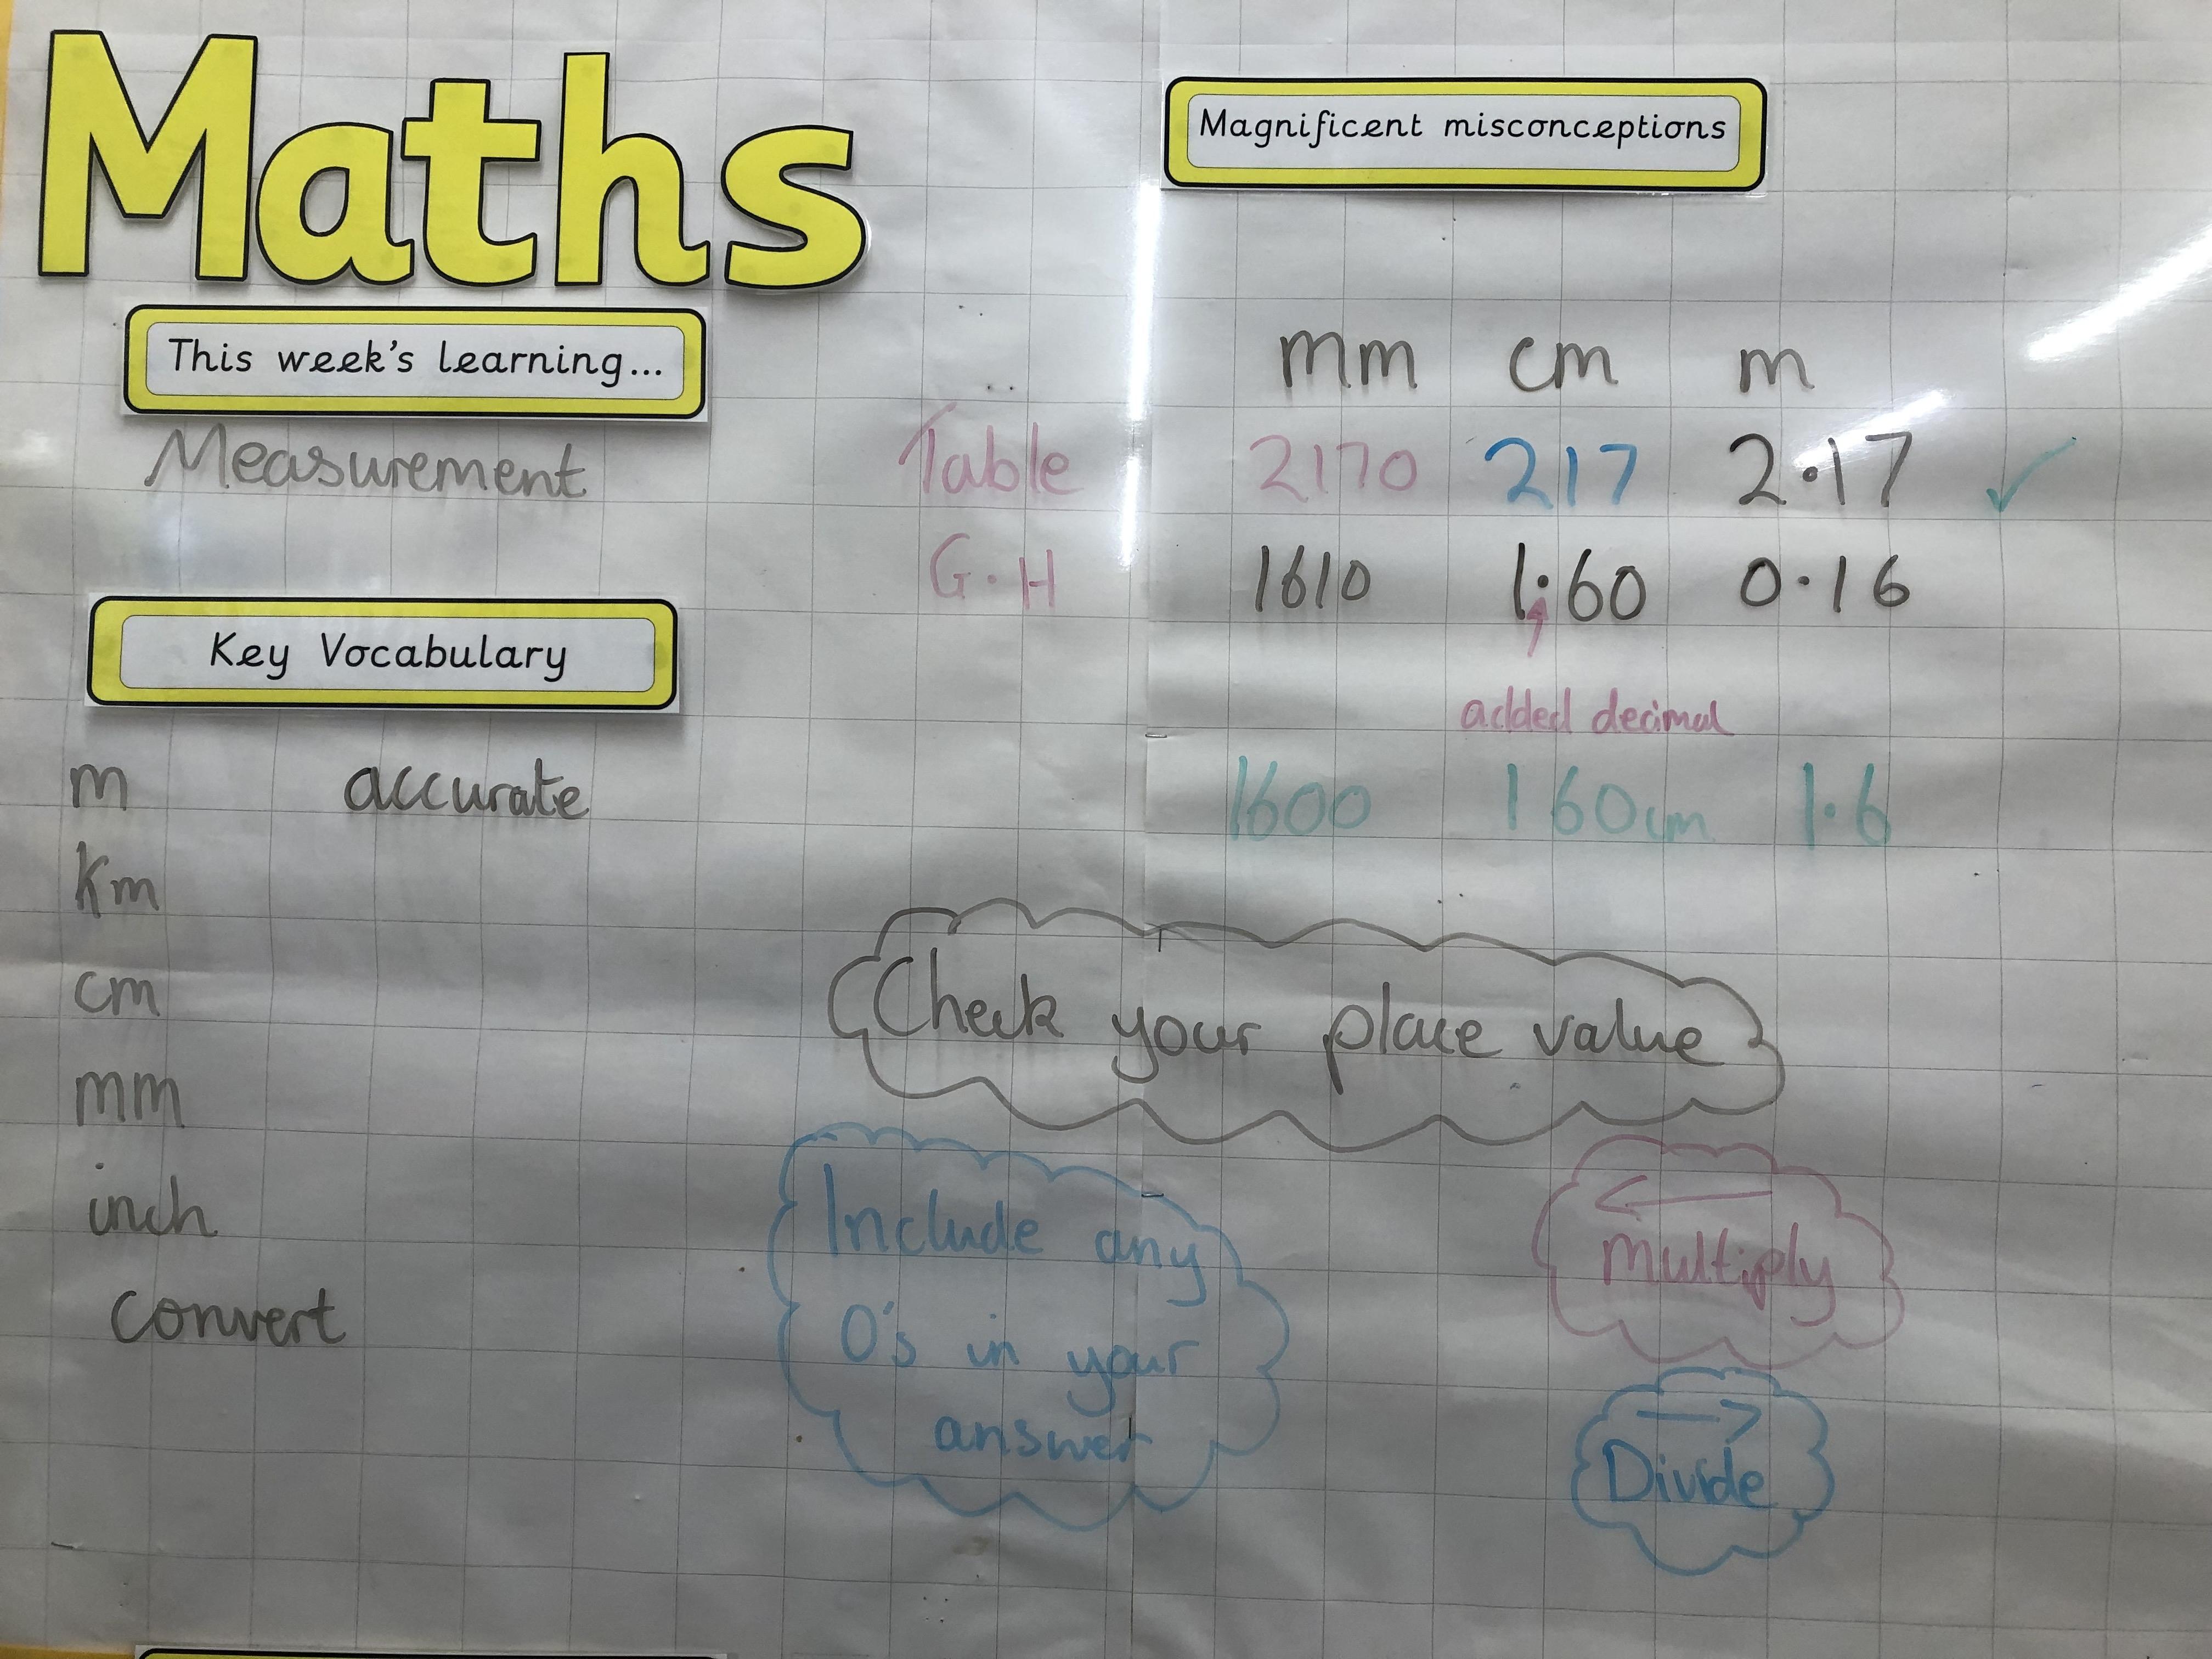 Maths
This week's learning...
Measurement
Key Vocabulary
m accurate
km
cm
mm
inch
convert
Magnificent misconceptions
mm cm m
Table 2170 217 2·17 ✓
G·H 1610 1·60 0·16
added decimal
1600 160cm 1·6
Check your place value
Include any
0's in your
answer
←
multiply
→
Divide